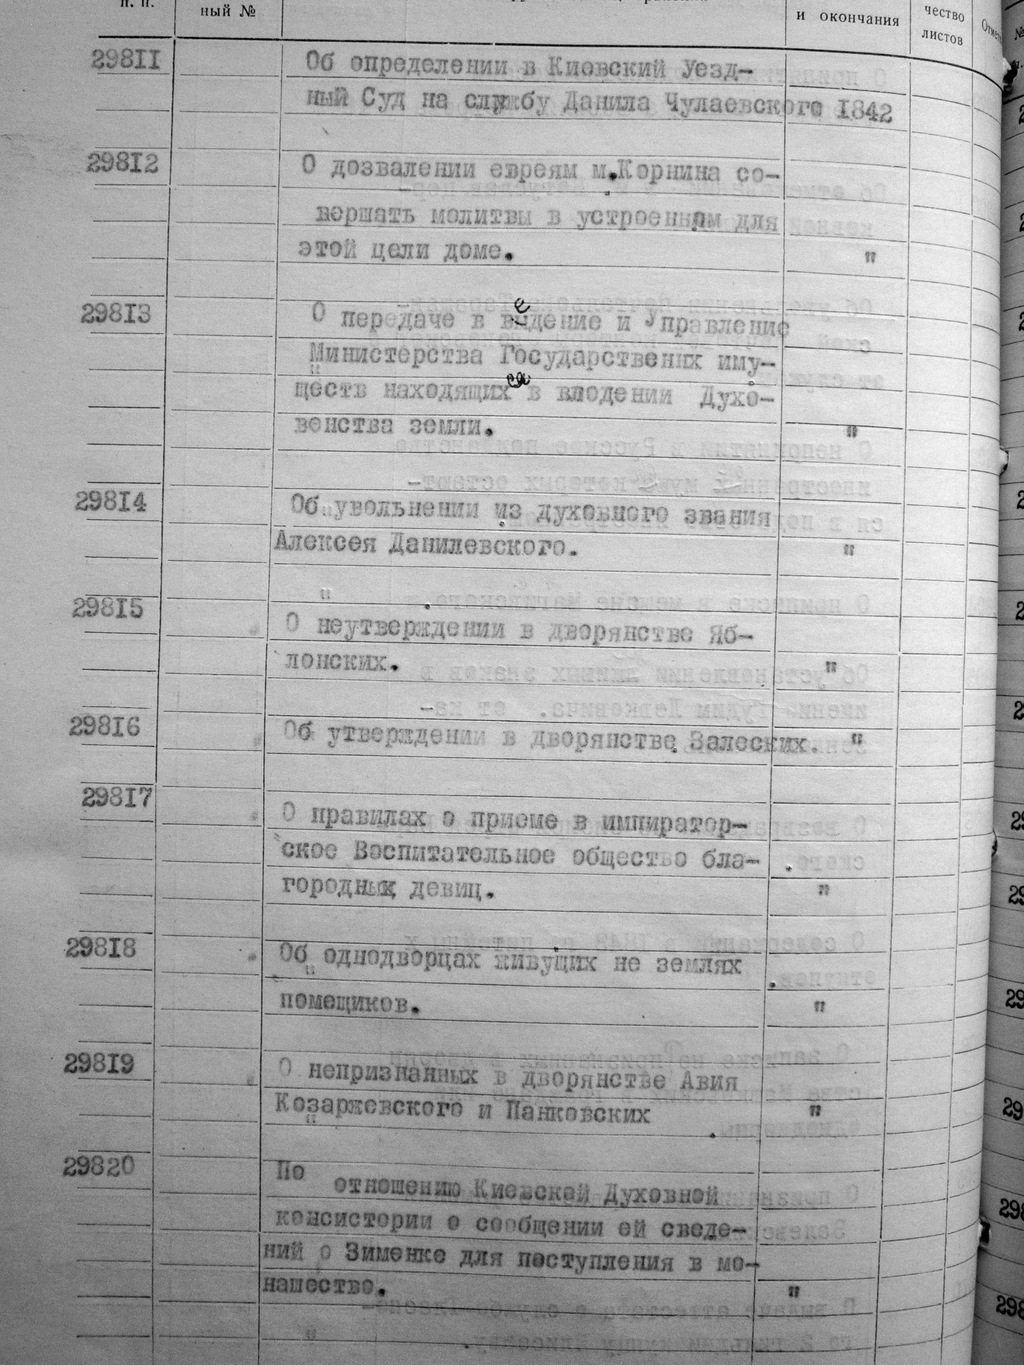 п. п.
ный №
и окончания
чество
листов
29811
Об определении в Киевский Уезд-
ный Суд на службу Данила Чулаевского 1842
29812
О дозвалении евреям м.Корнина со-
вершать молитвы в устроенном для
этой цели доме. "
29813
О передаче в ведение и Управление
Министерства Государственнх иму-
ществ находящихся в влодении Духо-
венства земли. "
29814
Об увольнении из духовного звания
Алексея Данилевского. "
29815
О неутверждении в дворянстве Яб-
лонских. "
29816
Об утверждении в дворянстве Залеских. "
29817
О правилах о приеме в импиратор-
ское Воспитательное общество бла-
городных девиц. "
29818
Об однодворцах живущих не землях
помещиков. "
29819
О непризнанных в дворянстве Авия
Козаржевского и Панковских "
29820
По
отношению Киевской Духовной
консистории о сообщении ей сведе-
ний о Зименке для поступления в мо-
нашество. "